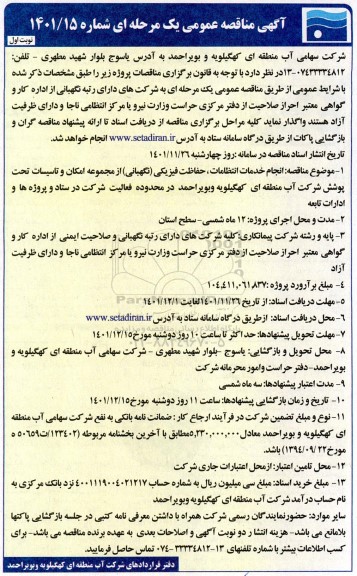 آگهی مناقصه عمومی یک مرحله ای شماره ۱۴۰۱/۱۵
نوبت اول
شرکت سهامی آب منطقه ای کهگیلویه و بویراحمد به آدرس یاسوج بلوار شهید مطهری - تلفن:
۱۳-۰۷۴۳۳۳۴۸۱۲ در نظر دارد با توجه به قانون برگزاری مناقصات پروژه زیر را طبق مشخصات ذکر شده
با شرایط عمومی از طریق مناقصه عمومی یک مرحله ای به شرکت های دارای رتبه نگهبانی از اداره کار و
گواهی معتبر احراز صلاحیت از دفتر مرکزی حراست وزارت نیرو یا مرکز انتظامی ناجا و دارای ظرفیت
آزاد هستند واگذار نماید کلیه مراحل برگزاری مناقصه از دریافت اسناد تا ارائه پیشنهاد مناقصه گران و
بازگشایی پاکات از طریق درگاه سامانه ستاد به آدرس www.setadiran.ir انجام خواهد شد.
تاریخ انتشار اسناد مناقصه در سامانه: روز چهارشنبه ۱۴۰۱/۱۱/۲۶
۱- موضوع مناقصه: انجام خدمات انتظامات، حفاظت فیزیکی (نگهبانی) از مجموعه امکان و تاسیسات تحت
پوشش شرکت آب منطقه ای کهگیلویه وبویراحمد در محدوده فعالیت شرکت در ستاد و پروژه ها و
ادارات تابعه
۲- مدت و محل اجرای پروژه: ۱۲ ماه شمسی - سطح استان
۳- پایه و رشته شرکت پیمانکاری: کلیه شرکت های دارای رتبه نگهبانی و صلاحیت ایمنی از اداره کار و
گواهی معتبر احراز صلاحیت از دفتر مرکزی حراست وزارت نیرو یا مرکز انتظامی ناجا و دارای ظرفیت
آزاد
۴- مبلغ برآورد پروژه: ۱۰۴,۴۱۱,۰۶۱,۸۳۷
۵- مهلت دریافت اسناد: از تاریخ ۱۴۰۱/۱۱/۲۶ لغایت ۱۴۰۱/۱۲/۱
۶- محل دریافت اسناد: از طریق درگاه سامانه ستاد به آدرس www.setadiran.ir
۷- مهلت تحویل پیشنهادها: حداکثر تا ساعت ۱۰ روز دوشنبه مورخ ۱۴۰۱/۱۲/۱۵
۸- محل تحویل و بازگشایی: یاسوج - بلوار شهید مطهری - شرکت سهامی آب منطقه ای کهگیلویه و
بویراحمد - دفتر حراست وامور محرمانه شرکت
۹- مدت اعتبار پیشنهادها: سه ماه شمسی
۱۰- تاریخ و زمان بازگشایی پیشنهادها: ساعت ۱۱ روز دوشنبه مورخ ۱۴۰۱/۱۲/۱۵
۱۱- نوع و مبلغ تضمین شرکت در فرآیند ارجاع کار: ضمانت نامه بانکی به نفع شرکت سهامی آب منطقه
ای کهگیلویه و بویراحمد معادل ۵,۲۳۰,۰۰۰,۰۰۰ مطابق با آخرین بخشنامه مربوطه (۱۲۳۴۰۲/ت۵۰۶۵۹ ه
مورخ ۱۳۹۴/۰۹/۲۲) باشد.
۱۲- محل تامین اعتبار: از محل اعتبارات جاری شرکت
۱۳- مبلغ خرید اسناد: مبلغ سی میلیون ریال به شماره حساب ۴۰۰۱۱۱۹۰۰۴۰۲۱۲۱۷ نزد بانک مرکزی به
نام حساب درآمد شرکت آب منطقه ای کهگیلویه وبویراحمد
سایر موارد: حضور نمایندگان رسمی شرکت همراه با داشتن معرفی نامه کتبی در جلسه بازگشایی پاکتها
بلامانع می باشد - هزینه انتشار دو نوبت آگهی و اصلاحات بعدی به عهده برنده مناقصه می باشد - برای
کسب اطلاعات بیشتر با شماره تلفنهای ۱۳-۳۳۳۳۴۸۱۲-۰۷۴ تماس حاصل فرمایید.
دفتر قراردادهای شرکت آب منطقه ای کهگیلویه وبویراحمد